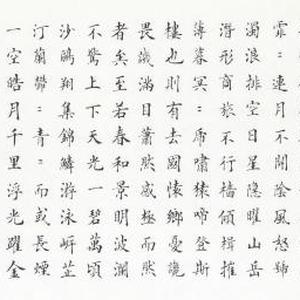 霏〻連月不開陰風怒號
濁浪排空日星隱曜山岳
潛形商旅不行檣傾楫摧
薄暮冥〻虎嘯猿啼登斯
樓也則有去國懷鄉憂讒
畏譏滿目蕭然感極而悲
者矣至若春和景明波瀾
不驚上下天光一碧萬頃
沙鷗翔集錦鱗游泳岸芷
汀蘭郁〻青〻而或長煙
一空皓月千里浮光躍金